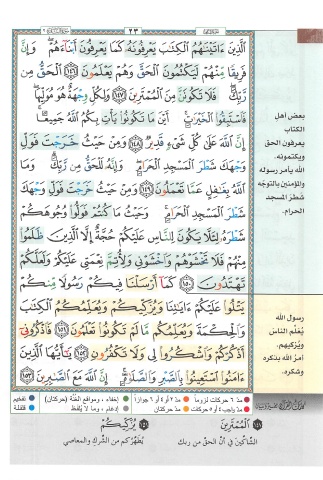 ٢٣
ٱلَّذِينَ ءَاتَيْنَٰهُمُ ٱلْكِتَٰبَ يَعْرِفُونَهُۥ كَمَا يَعْرِفُونَ أَبْنَآءَهُمْ ۖ وَإِنَّ
فَرِيقًا مِّنْهُمْ لَيَكْتُمُونَ ٱلْحَقَّ وَهُمْ يَعْلَمُونَ ١٤٦ ٱلْحَقُّ مِن
رَّبِّكَ ۖ فَلَا تَكُونَنَّ مِنَ ٱلْمُمْتَرِينَ ١٤٧ وَلِكُلٍّ وِجْهَةٌ هُوَ مُوَلِّيهَا ۖ
فَٱسْتَبِقُوا۟ ٱلْخَيْرَٰتِ ۚ أَيْنَ مَا تَكُونُوا۟ يَأْتِ بِكُمُ ٱللَّهُ جَمِيعًا ۚ
إِنَّ ٱللَّهَ عَلَىٰ كُلِّ شَىْءٍ قَدِيرٌ ١٤٨ وَمِنْ حَيْثُ خَرَجْتَ فَوَلِّ
وَجْهَكَ شَطْرَ ٱلْمَسْجِدِ ٱلْحَرَامِ ۖ وَإِنَّهُۥ لَلْحَقُّ مِن رَّبِّكَ ۗ وَمَا
ٱللَّهُ بِغَٰفِلٍ عَمَّا تَعْمَلُونَ ١٤٩ وَمِنْ حَيْثُ خَرَجْتَ فَوَلِّ وَجْهَكَ
شَطْرَ ٱلْمَسْجِدِ ٱلْحَرَامِ ۚ وَحَيْثُ مَا كُنتُمْ فَوَلُّوا۟ وُجُوهَكُمْ
شَطْرَهُۥ لِئَلَّا يَكُونَ لِلنَّاسِ عَلَيْكُمْ حُجَّةٌ إِلَّا ٱلَّذِينَ ظَلَمُوا۟
مِنْهُمْ فَلَا تَخْشَوْهُمْ وَٱخْشَوْنِى وَلِأُتِمَّ نِعْمَتِى عَلَيْكُمْ وَلَعَلَّكُمْ
تَهْتَدُونَ ١٥٠ كَمَآ أَرْسَلْنَا فِيكُمْ رَسُولًا مِّنكُمْ
يَتْلُوا۟ عَلَيْكُمْ ءَايَٰتِنَا وَيُزَكِّيكُمْ وَيُعَلِّمُكُمُ ٱلْكِتَٰبَ
وَٱلْحِكْمَةَ وَيُعَلِّمُكُم مَّا لَمْ تَكُونُوا۟ تَعْلَمُونَ ١٥١ فَٱذْكُرُونِىٓ
أَذْكُرْكُمْ وَٱشْكُرُوا۟ لِى وَلَا تَكْفُرُونِ ١٥٢ يَٰٓأَيُّهَا ٱلَّذِينَ
ءَامَنُوا۟ ٱسْتَعِينُوا۟ بِٱلصَّبْرِ وَٱلصَّلَوٰةِ ۚ إِنَّ ٱللَّهَ مَعَ ٱلصَّٰبِرِينَ ١٥٣
بعض اهل
الكتاب
يعرفون الحق
ويكتمونه.
الله يأمر رسوله
والمؤمنين بالتوجّه
شطر المسجد
الحرام.
رسول الله
يُعلّم الناس
ويُزكيهم.
أمرُ الله بذكره
وشكره.
مدّ ٦ حركات لزوماً مدّ ٢ أو ٤ أو ٦ جوازاً إخفاء، ومواقع الغنّة (حركتان) تفخيم
مدّ واجب ٤ أو ٥ حركات مدّ حركتان إدغام، وما لا يُلفظ قلقلة
١٤٧ ٱلْمُمْتَرِينَ
الشَّاكِّين في أنّ الحقّ من ربك
١٥١ يُزَكِّيكُمْ
يُطَهِّركم من الشّرك والمعاصي